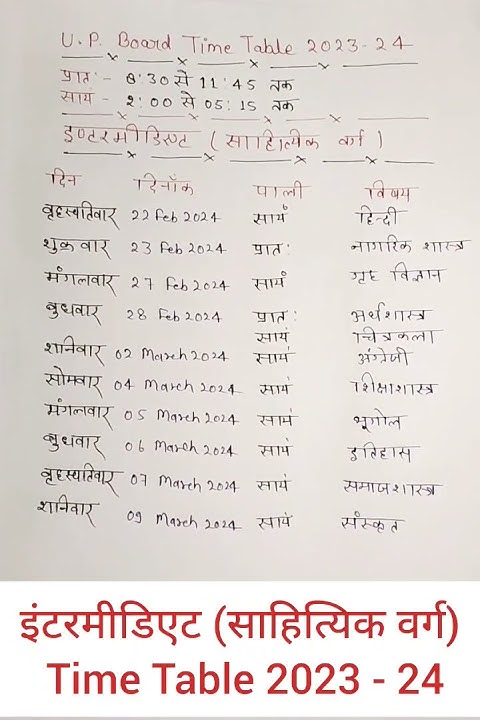 U.P. Board Time Table 2023-24
प्रातः - 8:30 से 11:45 तक
सायं - 2:00 से 05:15 तक
इण्टरमीडिएट (साहित्यिक वर्ग)
दिन दिनाँक पाली विषय
वृहस्पतिवार 22 Feb 2024 सायं हिन्दी
शुक्रवार 23 Feb 2024 प्रातः नागरिक शास्त्र
मंगलवार 27 Feb 2024 सायं गृह विज्ञान
बुधवार 28 Feb 2024 प्रातः अर्थशास्त्र
सायं चित्रकला
शनिवार 02 March 2024 सायं अंग्रेजी
सोमवार 04 March 2024 सायं शिक्षाशास्त्र
मंगलवार 05 March 2024 सायं भूगोल
बुधवार 06 March 2024 सायं इतिहास
वृहस्पतिवार 07 March 2024 सायं समाजशास्त्र
शनिवार 09 March 2024 सायं संस्कृत
इंटरमीडिएट (साहित्यिक वर्ग)
Time Table 2023 - 24